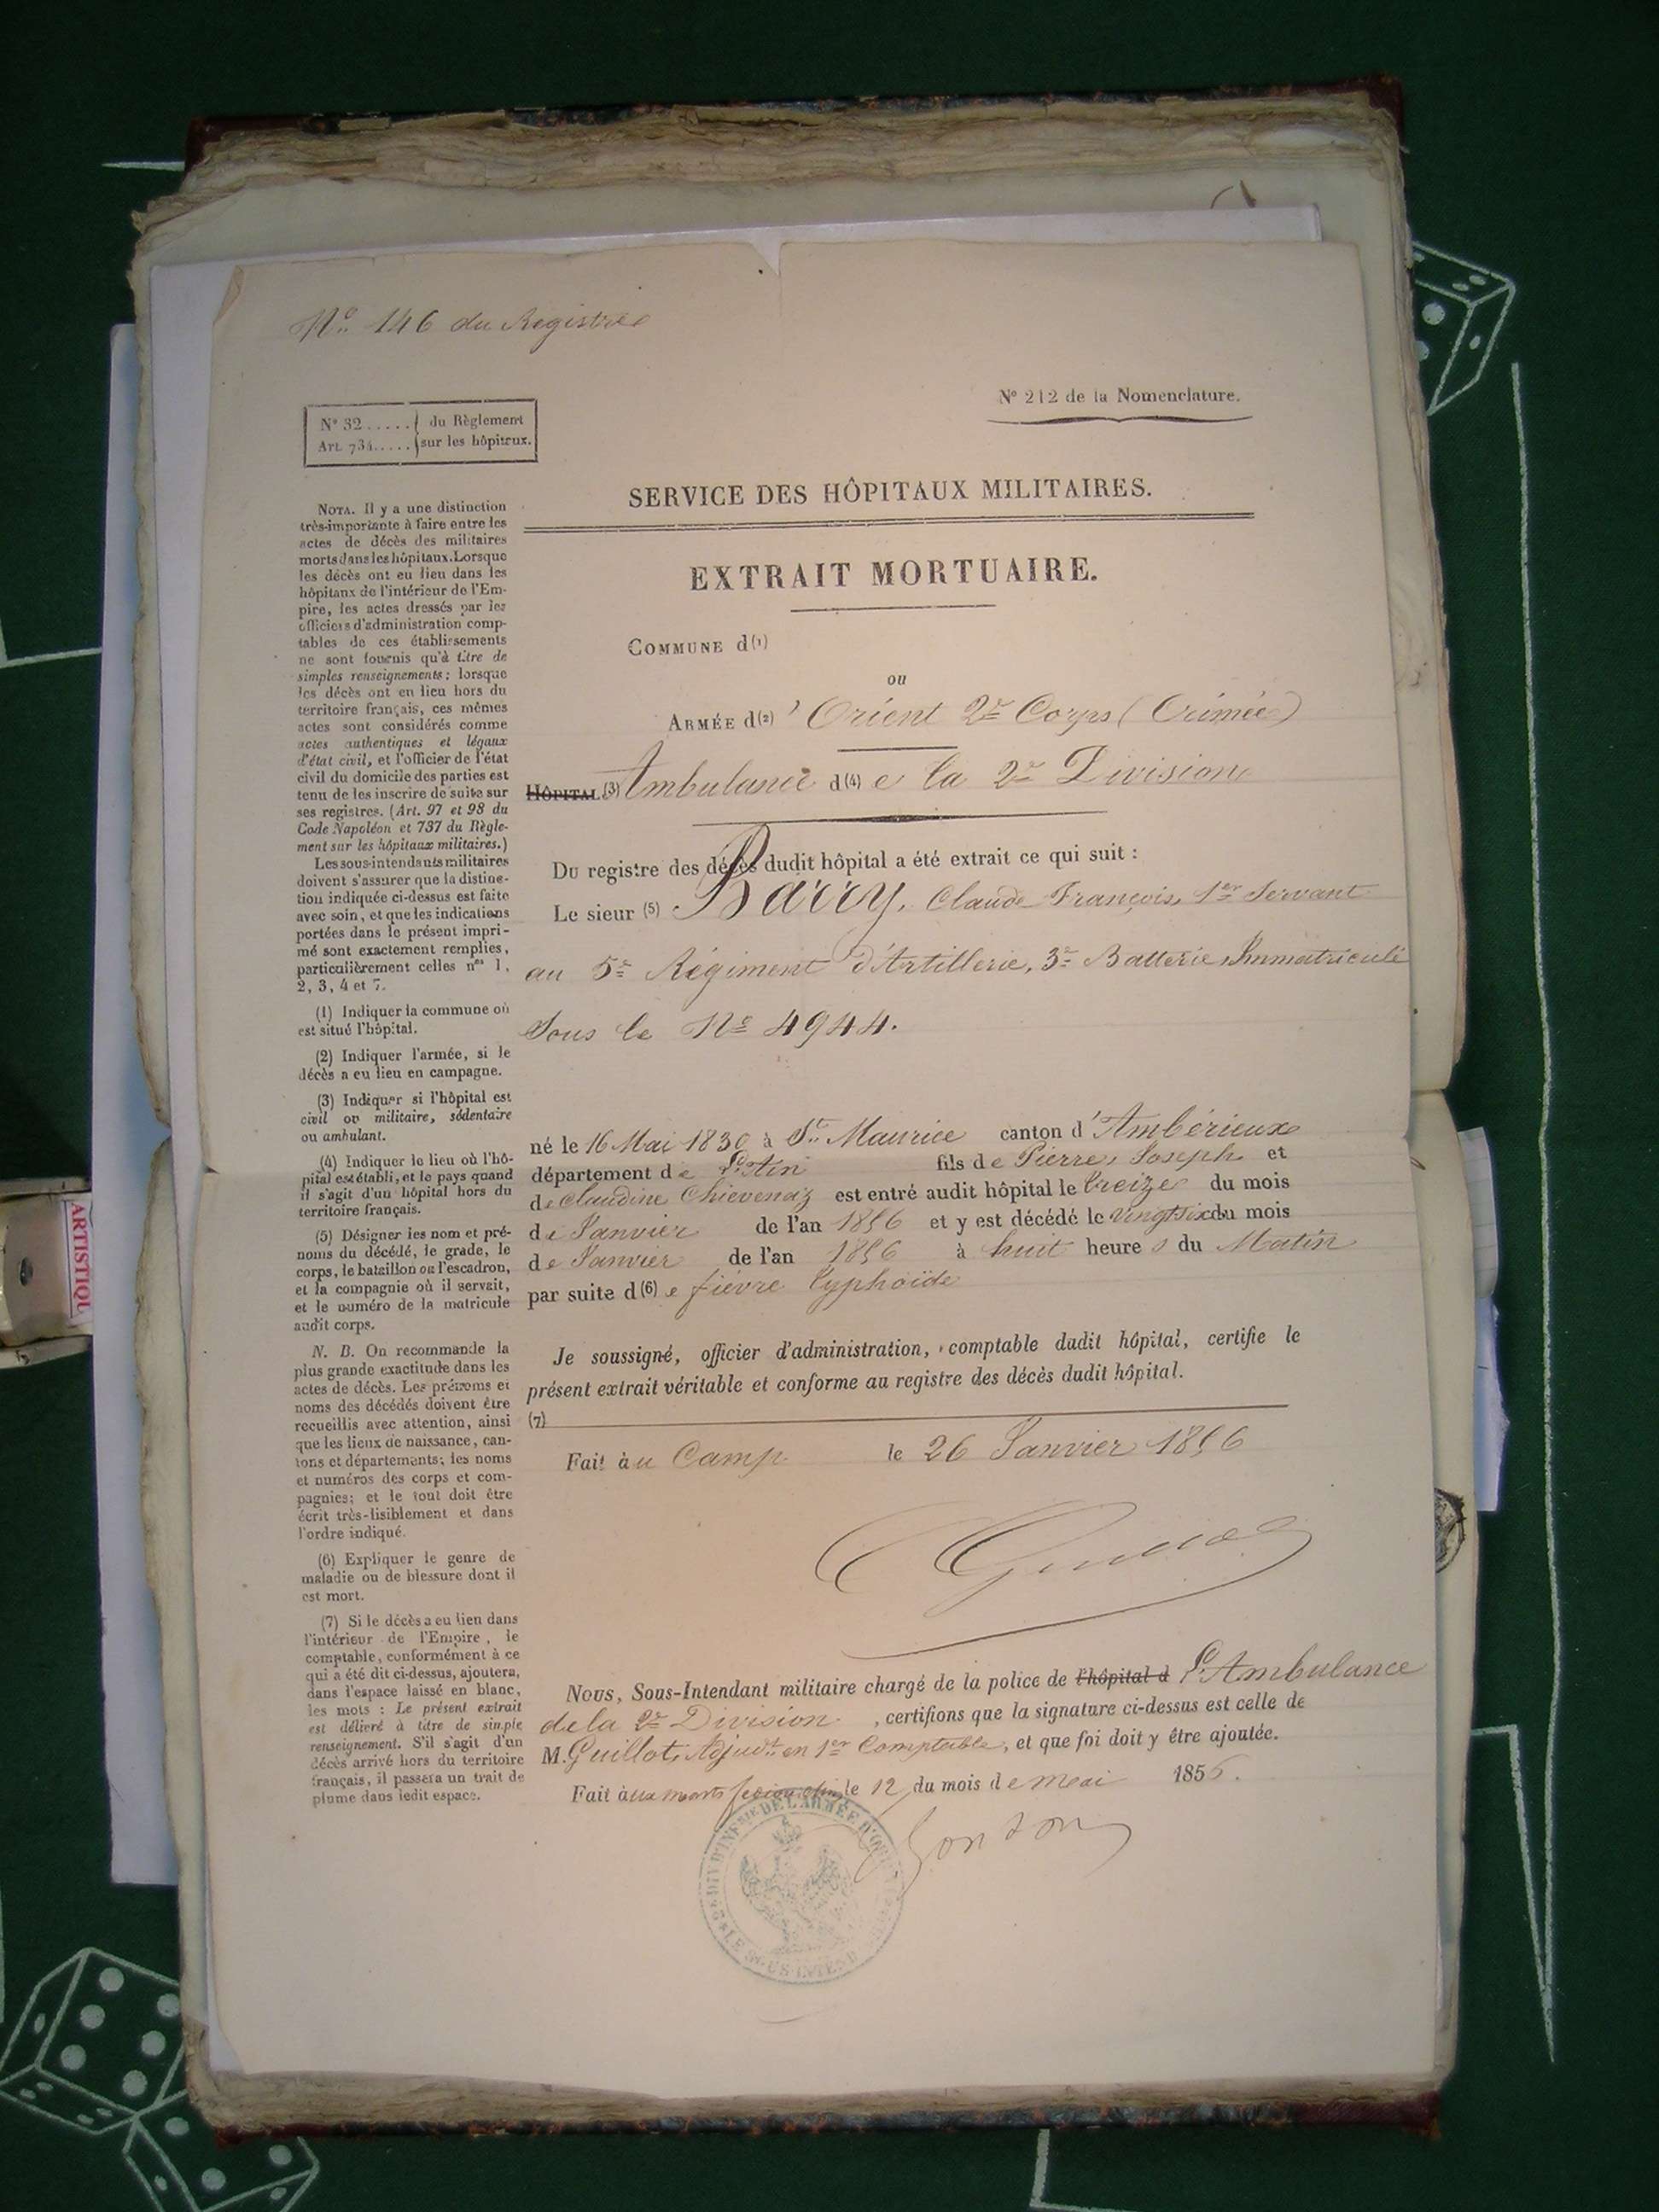 No. 146 du Registre
N° 212 de la Nomenclature.
N° 32 ..... du Règlement
Art. 734 .... sur les hôpitaux.
SERVICE DES HÔPITAUX MILITAIRES.
EXTRAIT MORTUAIRE.
COMMUNE d(1)
ou
ARMÉE d(2) 'Orient 2e Corps (Crimée)
HÔPITAL (3) Ambulance d(4) e la 2e Division
Du registre des décès dudit hôpital a été extrait ce qui suit :
Le sieur (5) Barry, Claude François, 1er Servant
au 5e Régiment d'Artillerie, 3e Batterie, Immatriculé
Sous le No 4944.
né le 16 Mai 1830 à St. Maurice canton d'Ambérieux
département de L'Ain fils de Pierre, Joseph et
de Claudine Chievenaz est entré audit hôpital le treize du mois
de Janvier de l'an 1856 et y est décédé le vingt six du mois
de Janvier de l'an 1856 à huit heures du Matin
par suite d(6) e fièvre typhoïde
Je soussigné, officier d'administration, comptable dudit hôpital, certifie le
présent extrait véritable et conforme au registre des décès dudit hôpital.
(7)
Fait à u Camp le 26 Janvier 1856
Nous, Sous-Intendant militaire chargé de la police de l'hôpital d L'Ambulance
de la 2e Division, certifions que la signature ci-dessus est celle de
M. Guillot, Adjudt. en 1er Comptable, et que foi doit y être ajoutée.
Fait à ux monts le 12 du mois de mai 1856.
NOTA. Il y a une distinction
très-importante à faire entre les
actes de décès des militaires
morts dans les hôpitaux. Lorsque
les décès ont eu lieu dans les
hôpitaux de l'intérieur de l'Em-
pire, les actes dressés par les
officiers d'administration comp-
tables de ces établissements
ne sont fournis qu'à titre de
simples renseignements; lorsque
les décès ont eu lieu hors du
territoire français, ces mêmes
actes sont considérés comme
actes authentiques et légaux
d'état civil, et l'officier de l'état
civil du domicile des parties est
tenu de les inscrire de suite sur
ses registres. (Art. 97 et 98 du
Code Napoléon et 737 du Règle-
ment sur les hôpitaux militaires.)
Les sous-intendants militaires
doivent s'assurer que la distinc-
tion indiquée ci-dessus est faite
avec soin, et que les indications
portées dans le présent impri-
mé sont exactement remplies,
particulièrement celles nos 1,
2, 3, 4 et 7.
(1) Indiquer la commune où
est situé l'hôpital.
(2) Indiquer l'armée, si le
décès a eu lieu en campagne.
(3) Indiquer si l'hôpital est
civil ou militaire, sédentaire
ou ambulant.
(4) Indiquer le lieu où l'hô-
pital est établi, et le pays quand
il s'agit d'un hôpital hors du
territoire français.
(5) Désigner les nom et pré-
noms du décédé, le grade, le
corps, le bataillon ou l'escadron,
et la compagnie où il servait,
et le numéro de la matricule
audit corps.
N. B. On recommande la
plus grande exactitude dans les
actes de décès. Les prénoms et
noms des décédés doivent être
recueillis avec attention, ainsi
que les lieux de naissance, can-
tons et départements; les noms
et numéros des corps et com-
pagnies; et le tout doit être
écrit très-lisiblement et dans
l'ordre indiqué.
(6) Expliquer le genre de
maladie ou de blessure dont il
est mort.
(7) Si le décès a eu lieu dans
l'intérieur de l'Empire, le
comptable, conformément à ce
qui a été dit ci-dessus, ajoutera,
dans l'espace laissé en blanc,
les mots : Le présent extrait
est délivré à titre de simple
renseignement. S'il s'agit d'un
décès arrivé hors du territoire
français, il passera un trait de
plume dans ledit espace.
ARTISTIQU